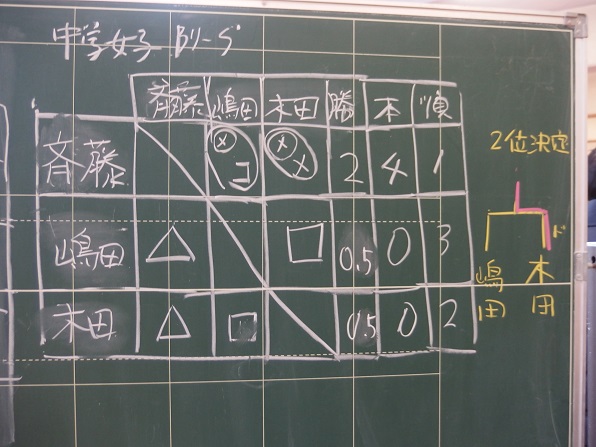 中学女子 Bリーグ
斉藤 嶋田 木田 勝 本 順
斉藤 メコ メメ 2 4 1
嶋田 △ □ 0.5 0 3
木田 △ □ 0.5 0 2
2位決定
ド
嶋田 木田